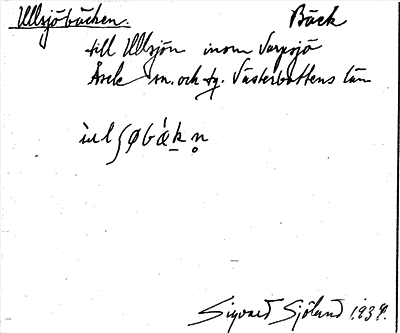 Ullsjöbäcken. Bäck
till Ullsjön inom Varpsjö
Åsele sn. och tg. Västerbottens län
Sigvard Sjölund 1934.